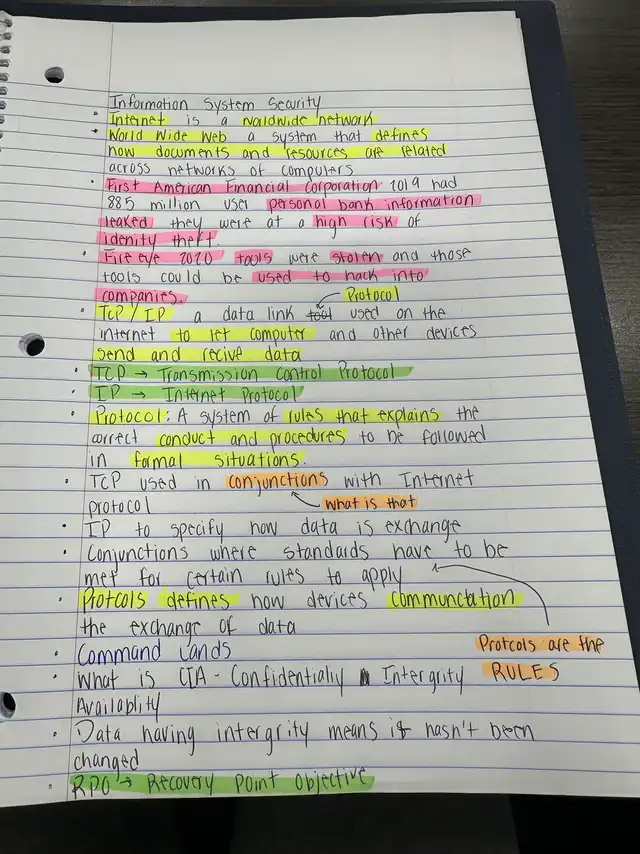 Information System Security
• Internet is a worldwide network
• World Wide Web a system that defines
how documents and resources are related
across networks of computers
• First American Financial Corporation 2019 had
885 million user personal bank information
leaked they were at a high risk of
idenity theft.
• Fire eye 2020 tools were stolen and those
tools could be used to hack into
companies.
Protocol
• TCP/IP a data link tool used on the
internet to let computer and other devices
send and recive data
• TCP → Transmission Control Protocol
• IP → Internet Protocol
• Protocol: A system of rules that explains the
correct conduct and procedures to be followed
in formal situations.
• TCP used in conjunctions with Internet
protocol
what is that
• IP to specify how data is exchange
• Conjunctions where standards have to be
met for certain rules to apply
• Protcols defines how devices communctation
the exchange of data
Protcols are the
RULES
• Command Lands
• What is CIA - Confidentialiy Intergrity
Availaplity
• Data having intergrity means it hasn't been
changed
• RPO → Recovery Point Objective